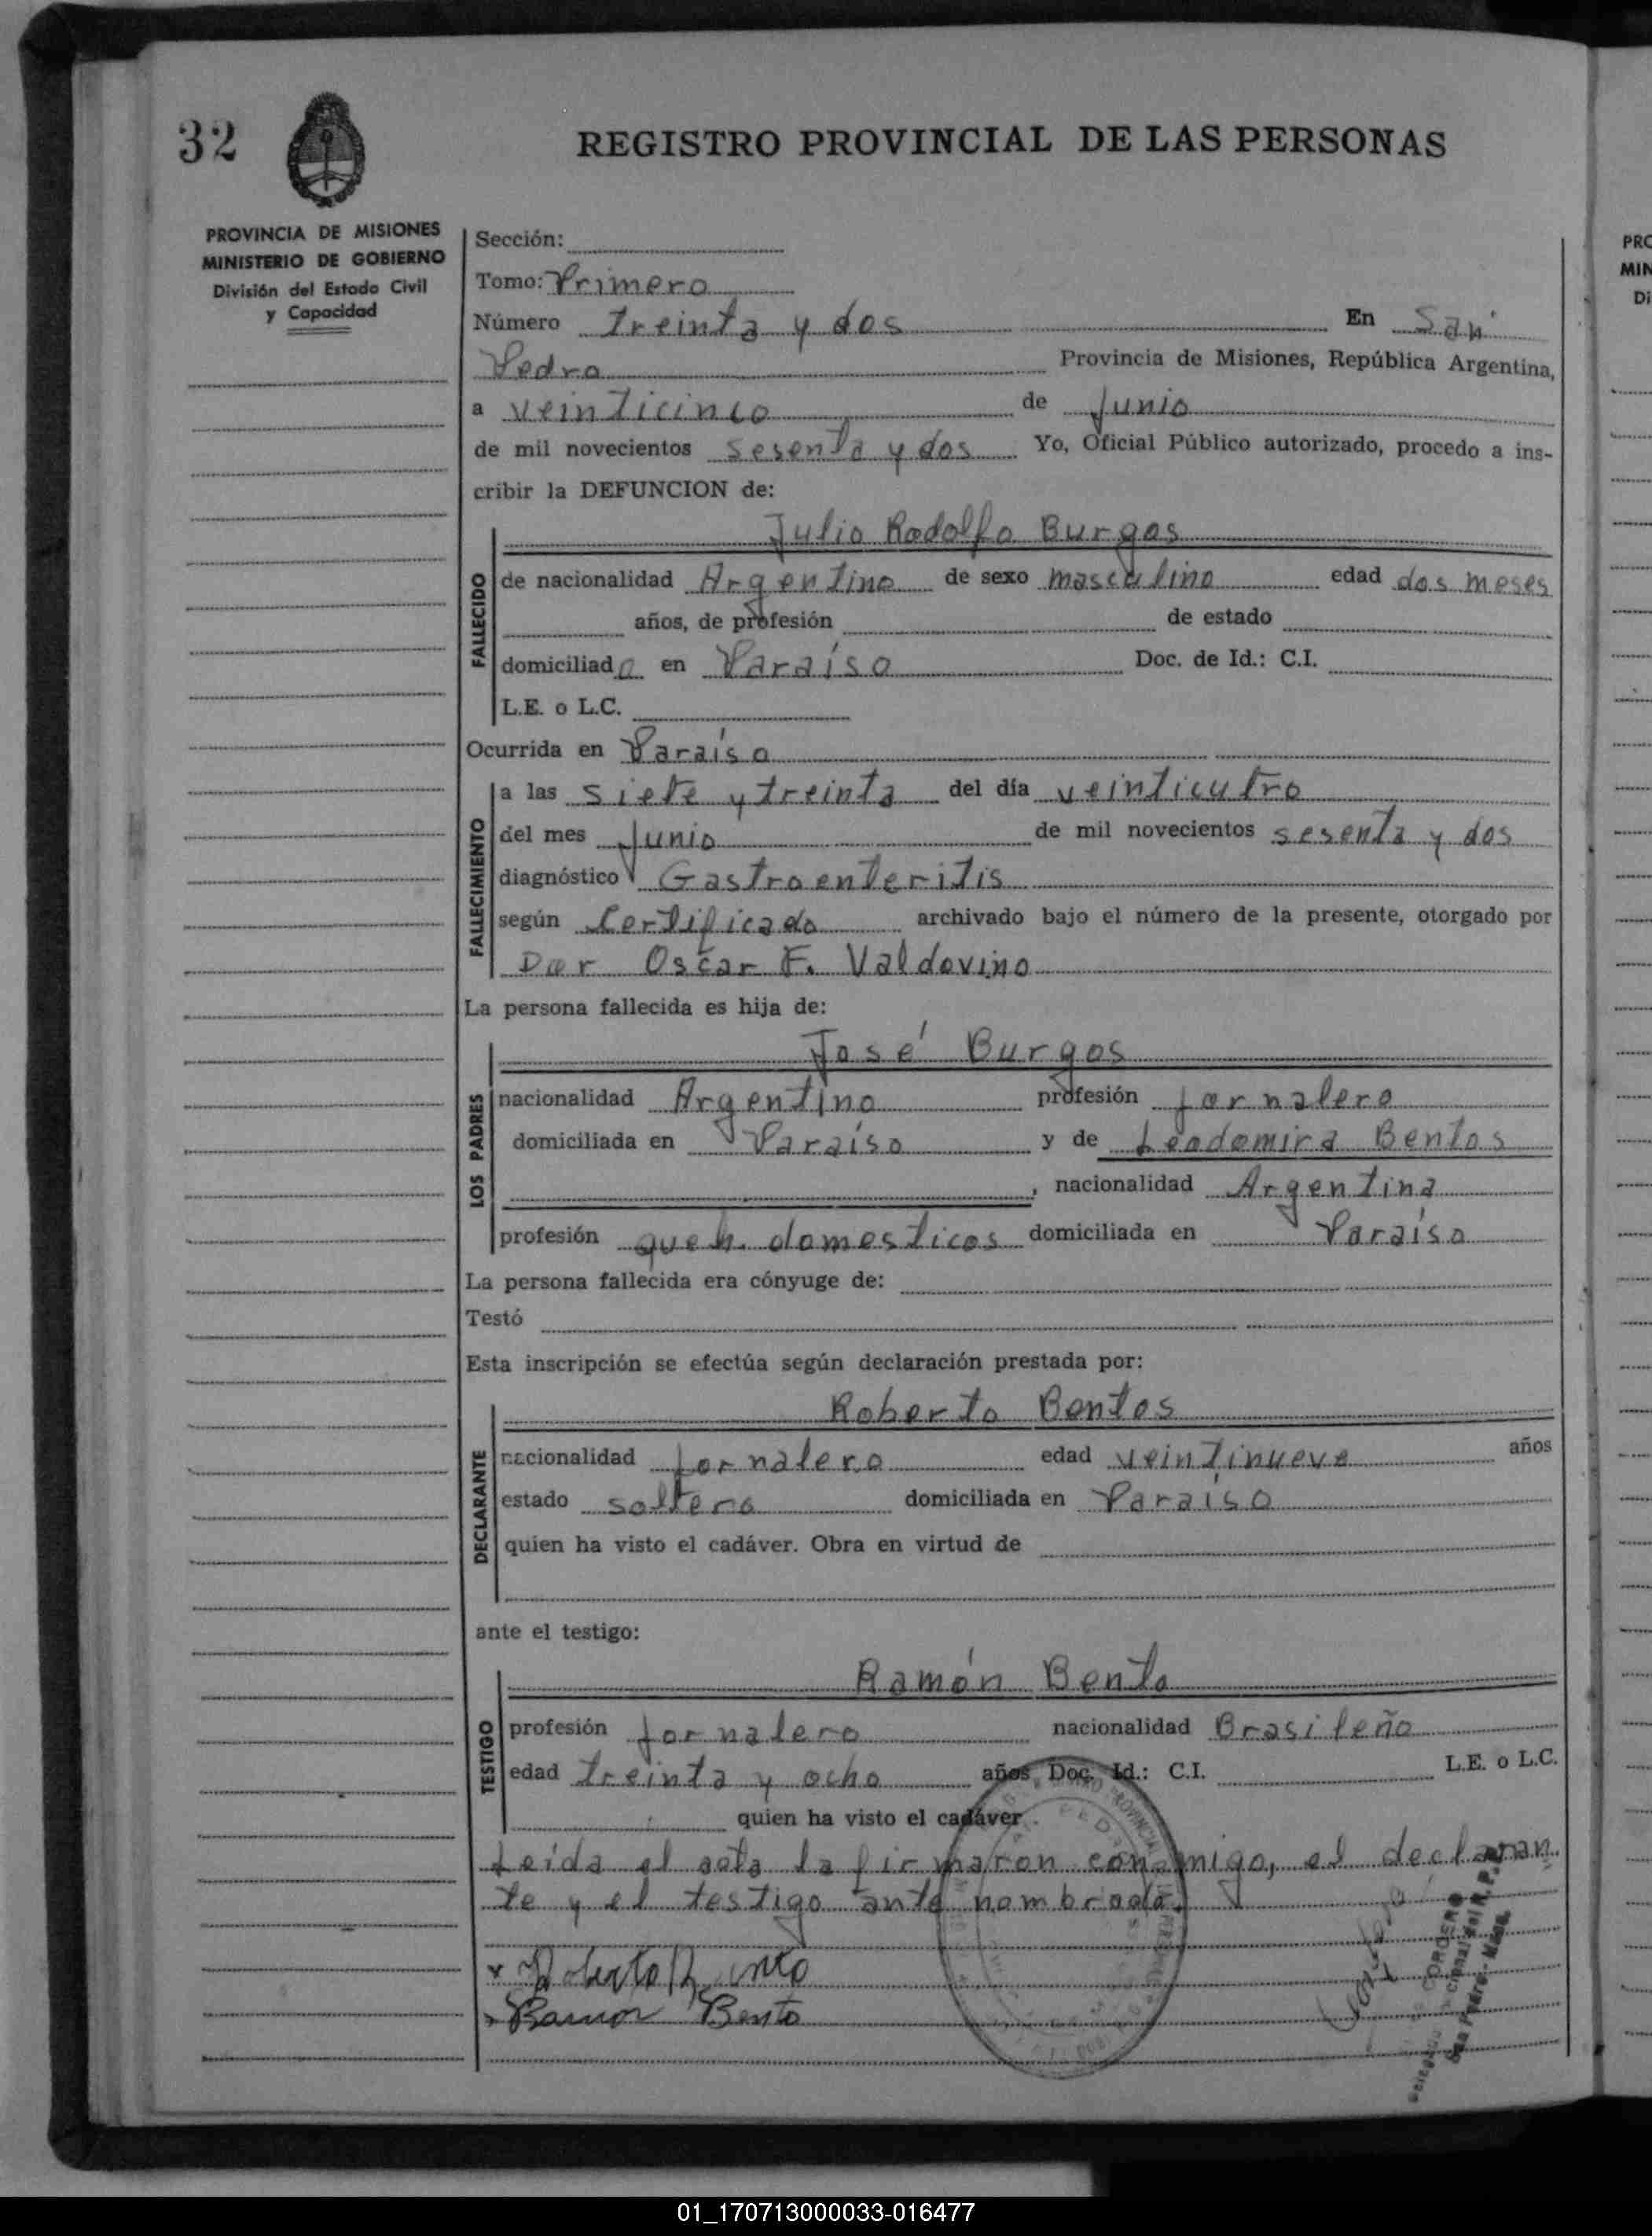 32
REGISTRO PROVINCIAL DE LAS PERSONAS
PROVINCIA DE MISIONES
MINISTERIO DE GOBIERNO
División del Estado Civil
y Capacidad
Sección:
Tomo: Primero
Número treinta y dos En San
Pedro Provincia de Misiones, República Argentina,
a veinticinco de Junio
de mil novecientos sesenta y dos Yo, Oficial Público autorizado, procedo a ins-
cribir la DEFUNCION de:
Julio Rodolfo Burgos
FALLECIDO
de nacionalidad Argentino de sexo masculino edad dos meses
años, de profesión de estado
domiciliado en Paraíso Doc. de Id.: C.I.
L.E. o L.C.
Ocurrida en Paraíso
FALLECIMIENTO
a las siete y treinta del día veinticutro
del mes Junio de mil novecientos sesenta y dos
diagnóstico Gastroenteritis
según Certificado archivado bajo el número de la presente, otorgado por
Oscar F. Valdovino
La persona fallecida es hija de:
José Burgos
LOS PADRES
nacionalidad Argentino profesión jornalero
domiciliada en Paraíso y de Leodomira Bentos
, nacionalidad Argentina
profesión queh. domesticos domiciliada en Paraíso
La persona fallecida era cónyuge de:
Testó
Esta inscripción se efectúa según declaración prestada por:
Roberto Bentos
DECLARANTE
nacionalidad jornalero edad veintinueve años
estado soltero domiciliada en Paraiso
quien ha visto el cadáver. Obra en virtud de
ante el testigo:
Ramón Bento
TESTIGO
profesión jornalero nacionalidad Brasileño
edad treinta y ocho años Doc. Id.: C.I. L.E. o L.C.
quien ha visto el cadáver.
Leida el acta la firmaron conmigo, el declaran
te y el testigo ante nombrado.
x Roberto Bento
x Ramon Bento
CORDERO
San Pedro - Mnes.
PRO
MIN
Di
01_170713000033-016477